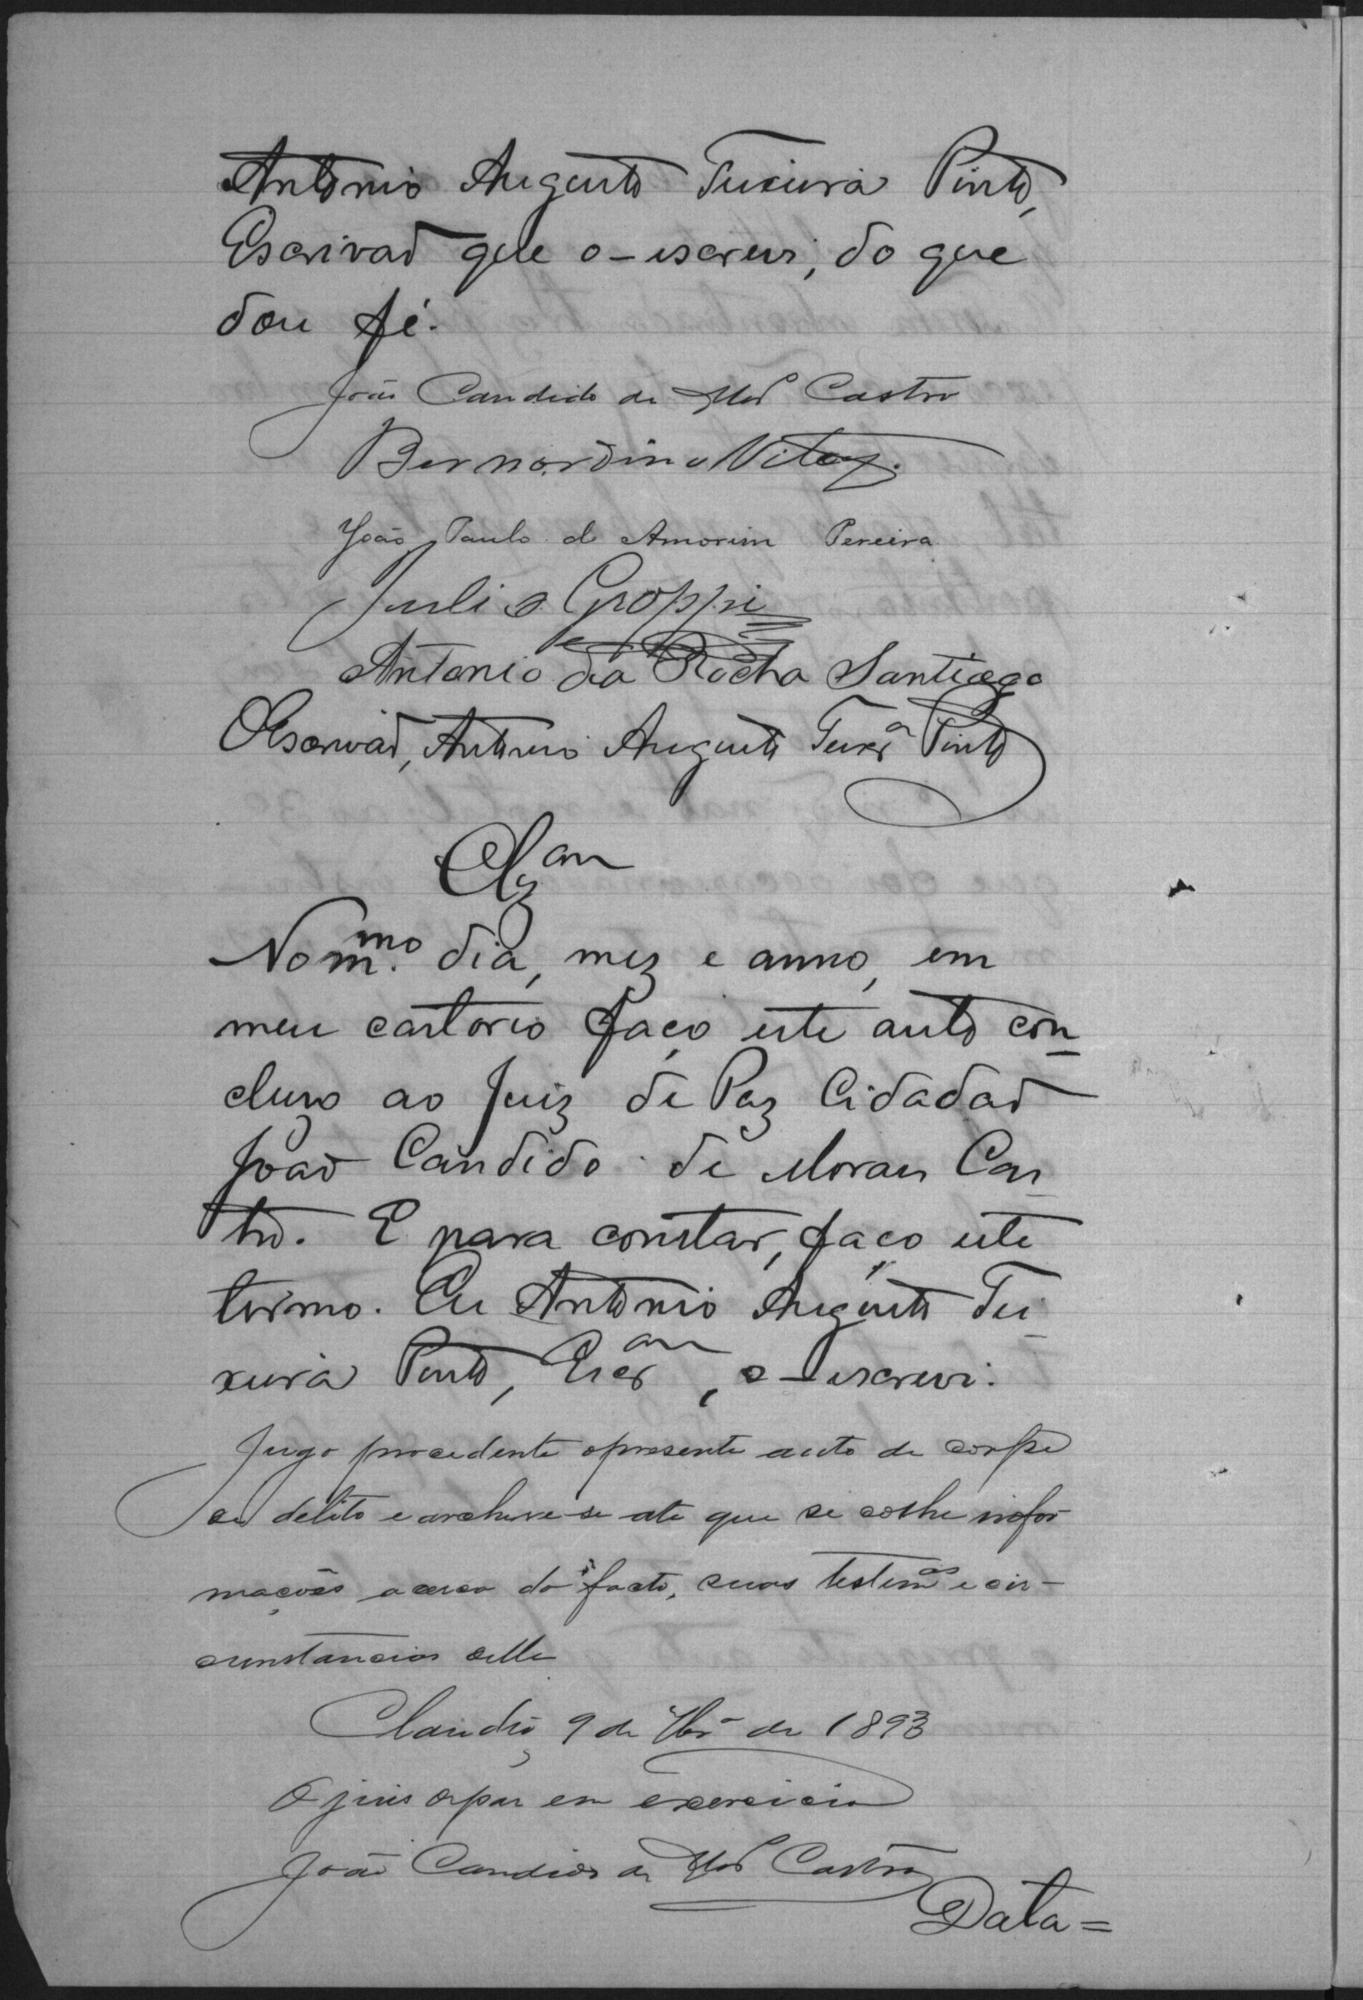 Antonio Augusto Teixeira Pinto,
Escrivaõ que o-escrevi, do que
dou fé.
João Candido de Mor.s Castro
Bernardino
João Paulo d Amorim Pereira
Julio Groppi
Antonio da Rocha Santiago
OEscrivaõ, Antonio Augusto Teixr.a Pinto
Clzam
No m.mo dia, mez e anno, em
meu cartorio faço este auto con-
cluzo ao Juiz de Paz Cidadaõ
Joaõ Candido de Moraes Cas
tro. E para constar, faço este
termo. Eu Antonio Augusto Tei
xeira Pinto, Escram, o-escrevi.
Jugo procedente opresente auto de corpo
de delito e archive-se ate que se colhe infor
mações acerca do facto, suas testemas e cir-
cunstancias delle
Claudio, 9 de 7br.o de 1893
O juis depas em exercicio
João Candido de Mor.s Castro
Data=